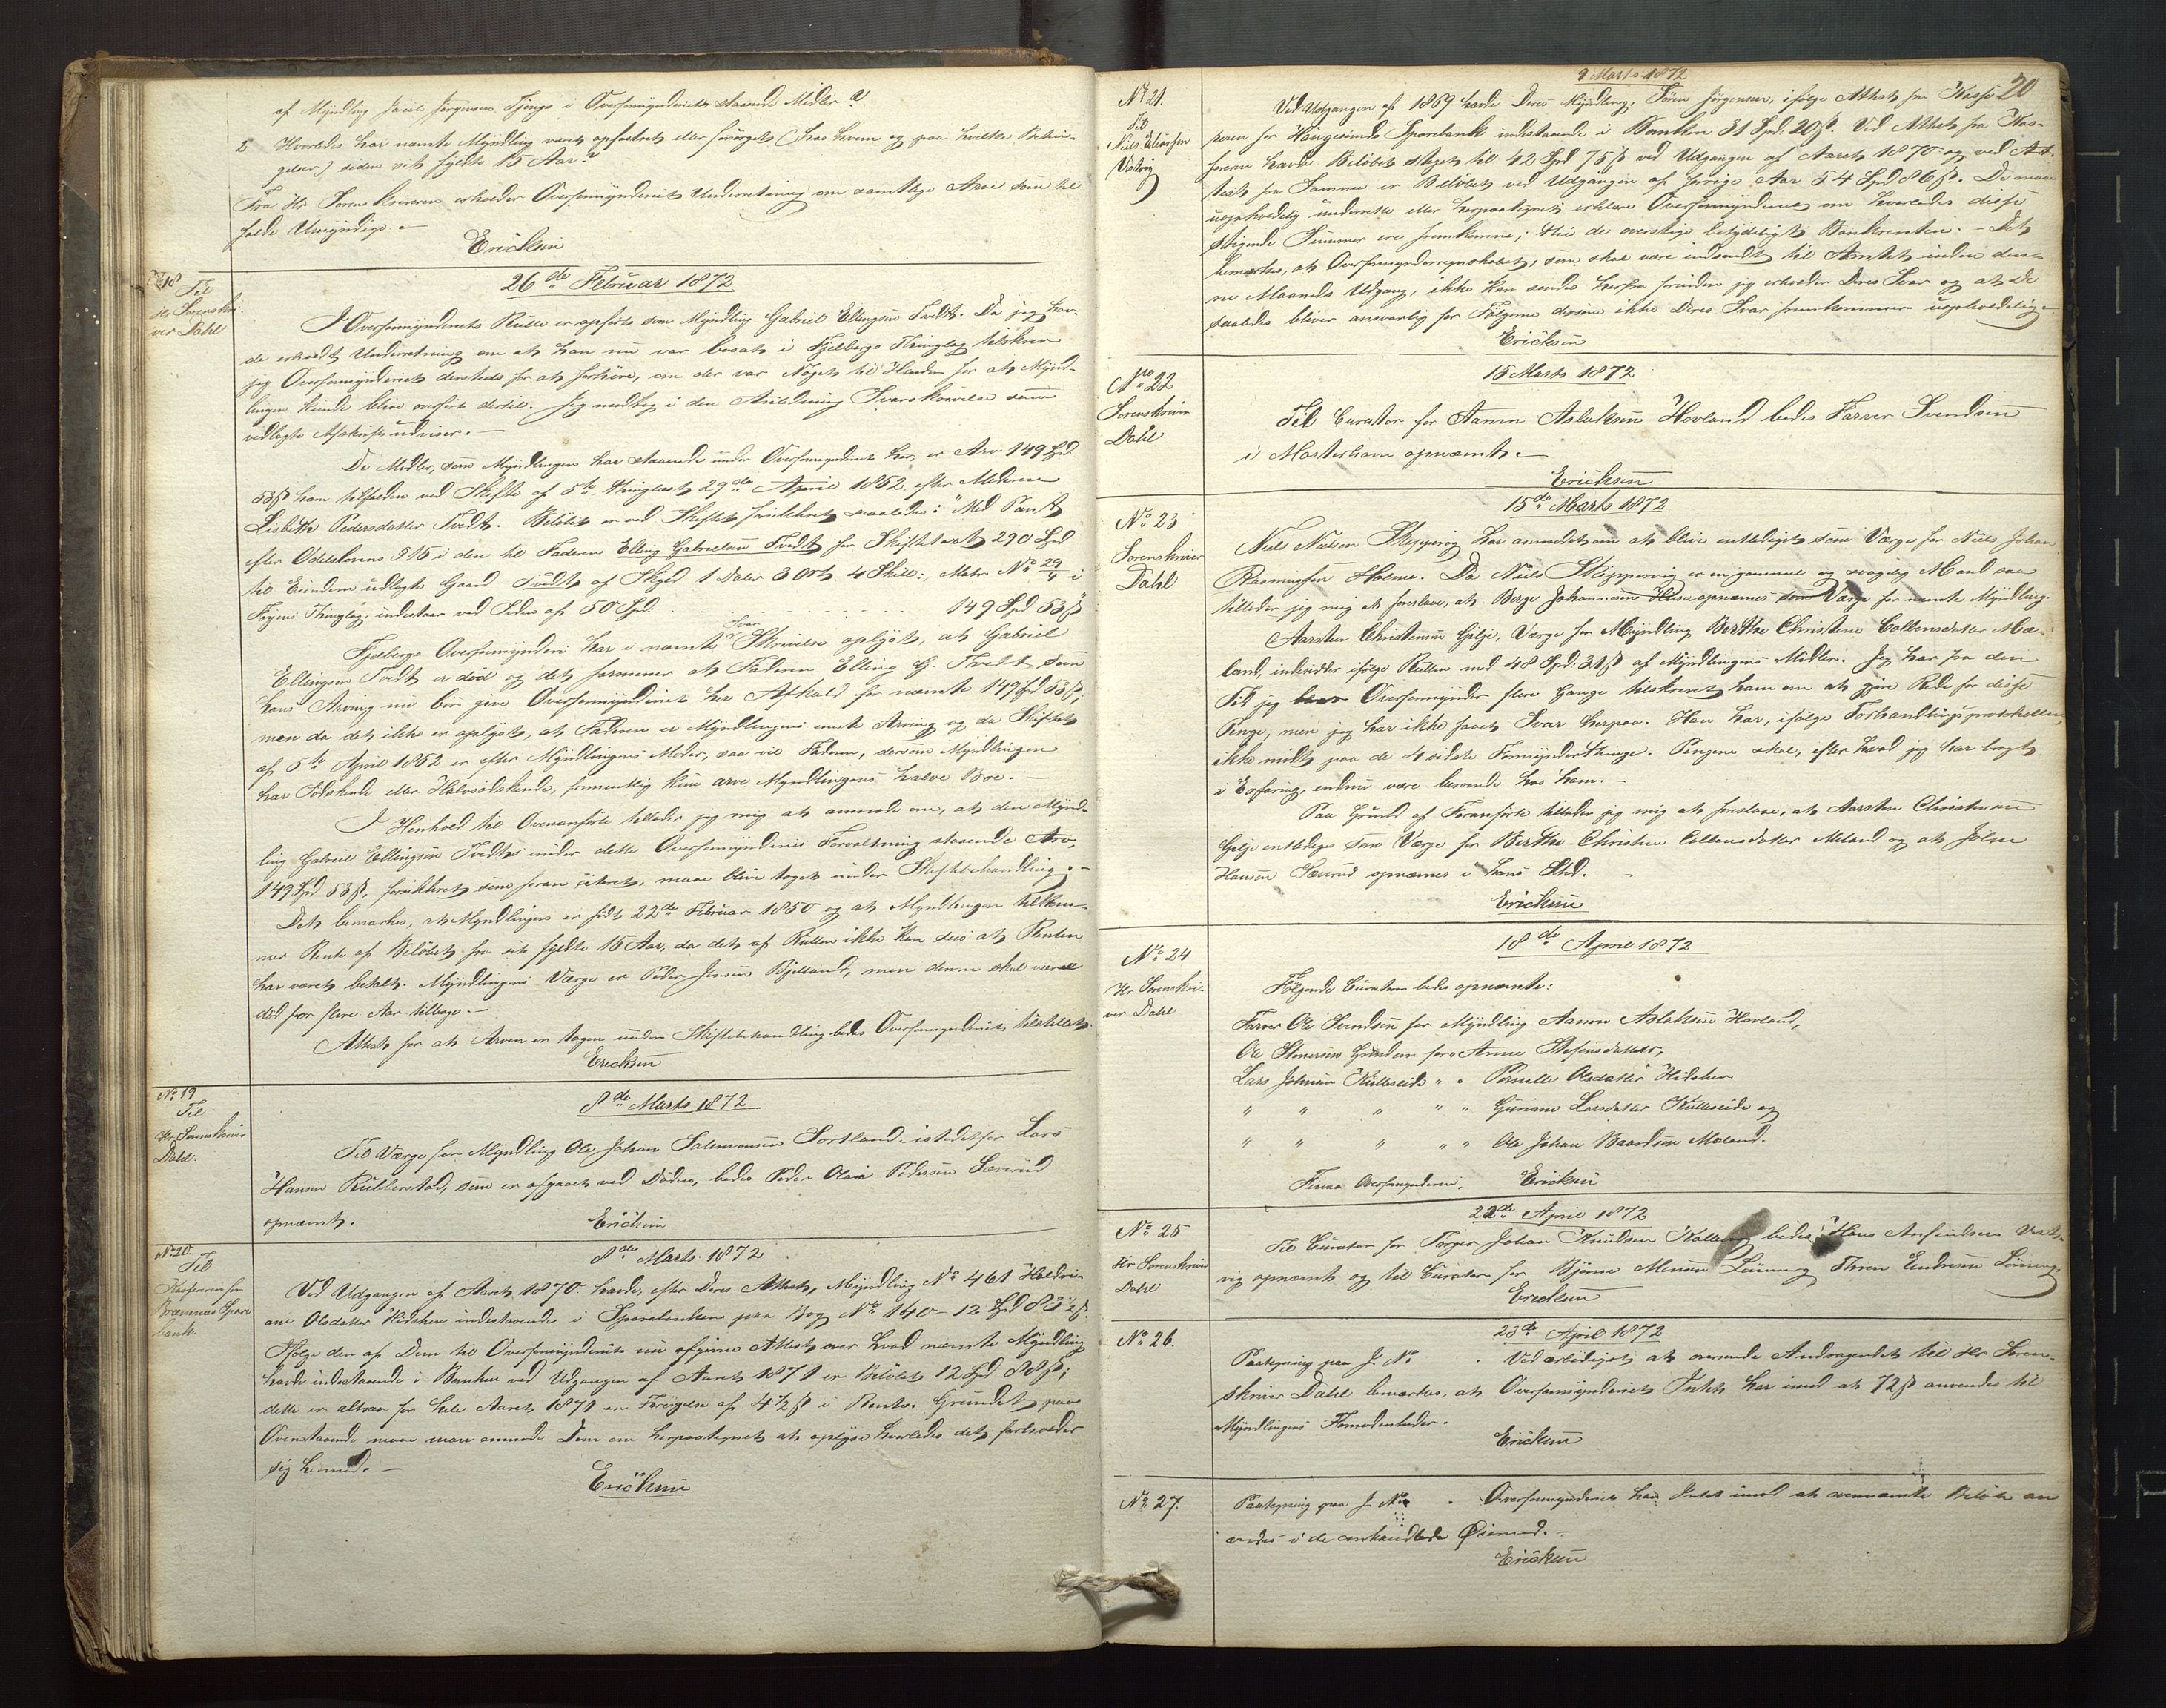 af Myndling Jacob Jørgensens Tjenge i Overformynderiet staaende Midler?
2 Hvorledes har nævnte Myndling været opfostret eller forsørget (hos hvem og paa hvilke Betin-
gelser) siden sit fyldte 15 Aar?
Fra Hr Sorenskriveren erholder Overformynderiet Underretning om samtlige Arve som til
falde Umyndige.
Ericksen
No 18
Til
Hr Sorenskri-
ver Dahl
26de Februar 1872
I Overformynderiets Rulle er opført som Myndling Gabriel Ellingsen Tvedt. Da jeg hav-
de erholdt Underretning om at han nu var bosat i Fjelbergs Thinglag tilskrev
jeg Overformynderiet dersteds for at forhøre, om der var Noget til Hinder for at Mynd-
lingen kunde blive overført dertil. Jeg modtog i den Anledning Svarskrivelse som
vedlagte Afskrift udviser.
De Midler, som Myndlingen har staaende under Overformynderiet her, er Arv 149 Spd
53ß ham tilfalden ved Skifte af 5te, thinglæst 29de April 1862 efter Moderen
Lisbeth Pedersdatter Tvedt. Beløbet er ved Skiftet forsikkret saaledes: "Med Pant
efter Odelslovens § 15 i den til Faderen Elling Gabrielsen Tvedt for Skiftetaxt 290 Spd
til Eiendom udlagte Gaard Tvedt af Skyld 1 Daler 3 Ort 4 Skill:, Matr No 29/4 i
Føyens Thinglag, indestaar ved Siden af 50 Spd. 149 Spd 53ß"
Fjelbergs Overformynderi har i nævnte Svar Skrivelse oplyst, at Gabriel
Ellingsen Tvedt er død og det formener at Faderen Elling G. Tvedt som
hans Arving nu bør give Overformynderiet her Afkald for nævnte 149 Spd 53ß,
men da det ikke er oplyst, at Faderen er Myndlingens eneste Arving og da Skiftet
af 5te April 1862 er efter Myndlingens Moder, saa vil Faderen, dersom Myndlingen
har Sødskende eller Halvsødskende, formentlig kun arve Myndlingens halve Boe.
I Henhold til Ovenanførte tillader jeg mig at anmode om, at den Mynd-
ling Gabriel Ellingsen Tvedt under dette Overformynderies Forvaltning staaende Arv,
149 Spd 53ß, forsikkret som foran citeret, maae blive taget under Skiftebehandling.
Det bemærkes, at Myndlingen er født 22de Februar 1850 og at Myndlingen tilkom-
mer Rente af Beløbet fra sit fyldte 15 Aar, da det af Rullen ikke kan sees at Renten
har været betalt. Myndlingens Værge er Peder Jensen Bjelland, men denne skal være
død for flere Aar tilbage.
Attest for at Arven er tagen under Skiftebehandling bedes Overformynderiet tilstillet.
Ericksen
No 19
Til
Hr Sorenskriver
Dahl.
8de Marts 1872
Til Værge for Myndling Ole Johan Salemonsen Sortland istedetfor Lars
Hansen Rubbestad, som er afgaaet ved Døden, bedes Peder Olai Pedersen Sæverud
opnævnt.
Ericksen
No 20
Til
Kassereren for
Bremnæs Spare
bank.
8de Marts 1872
Ved Udgangen af Aaret 1870 havde, efter Deres Attest, Myndling No 461 Haldori-
ane Olsdatter Hidshen indestaaende i Sparebanken paa Bog No 140 - 12 Spd 83½ß.
Ifølge den af Dem til Overformynderiet nu afgivne Attest over hvad nævnte Myndling
havde indestaaende i Banken ved Udgangen af Aaret 1871 er Beløbet 12 Spd 88ß;
dette er altsaa for hele Aaret 1871 en Forøgelse af 4½ß i Rente. Grundet paa
Ovenstaaende maae man anmode Dem om herpaategnet at oplyse hvorledes det forholder
sig hermed.
Ericksen
20
No 21.
Til
Niels Eliassen
Vestvig
9 Marts 1872
Ved Udgangen af 1869 havde Deres Myndling, Søren Jørgensen, ifølge Attest fra Kasse-
reren for Haugesunds Sparebank indestaaende i Banken 31 Spd. 20ß. Ved Attest fra Kas-
sereren havde Beløbet steget til 42 Spd 75ß ved Udgangen af Aaret 1870 og ved At-
test fra Samme er Beløbet ved Udgangen af forrige Aar 54 Spd 86ß. De maae
uopholdelig underrette eller herpaategnet erklære Overformynderiet om hvorledes disse
stigende Summer ere fremkomne; thi de overstige betydeligt Bankrenten. - Det
bemærkes, at Overformynderregnskabet, som skal være indsendt til Amtet inden den-
ne Maaneds Udgang, ikke kan sendes herfra førinden jeg erholder Deres Svar og at De
saaledes bliver ansvarlig for Følgerne dersom ikke Deres Svar fremkommer uopholdelig.
Ericksen
No 22
Sorenskriver
Dahl
15 Marts 1872
Til Curator for Aamn Aslaksen Hovland bedes Farver Svendsen
i Mosterhavn opnævnt.
Ericksen
No 23
Sorenskriver
Dahl
15de Marts 1872
Niels Nielsen Skeppevig har anmodet om at blive entlediget som Værge for Niels Johan
Rasmussen Holme. Da Niels Skeppevig er en gammel og svagelig Mand saa
tillader jeg mig at foreslaae, at Berge Johannesen Huse opnævnes som Værge for nævnte Myndling.
Aarsten Christensen Gilje, Værge for Myndling Berthe Christine Colbensdatter Mæ-
land, indesidder ifølge Rullen med 48 Spd. 31ß af Myndlingens Midler. Jeg har fra den
Tid jeg blev Overformynder flere Gange tilskrevet ham om at gjøre Rede for disse
Penge, men jeg har ikke faaet Svar herpaa. Han har, ifølge Forhandlingsprotokollen,
ikke mødt paa de 4 sidste Formynderthinge. Pengene skal, efter hvad jeg har bragt
i Erfaring, endnu være beroende hos ham.
Paa Grund af Foranførte tillader jeg mig at foreslaae, at Aarsten Christensen
Gilje entlediges som Værge for Berthe Christine Colbensdatter Mæland og at Johan
Hansen Sæverud opnævnes i hans Sted.
Ericksen
No 24
Hr Sorenskri-
ver Dahl
18de April 1872
Følgende Curatorer bedes opnævnte:
Farver Ole Svendsen for Myndling Aamn Aslaksen Hovland,
Ole Steinersen for " Anne Stefensdatter,
Lars Johnsen Kulleseid " " Pernille Olsdatter Hidshen
" " " " " Guriane Larsdatter Kulleseid og
" " " " " Ole Johan Baardsen Mæland.
Finnø Overformynderi. Ericksen
No 25
Hr Sorenskriver
Dahl
22de April 1872
Til Curator for Torger Johan Knudsen bedes Hans Anfindsen Vest-
vig opnævnt og til Curator for Bjørne Monsen Løining Thore Endresen Løining.
Ericksen
No 26.
23de April 1872
Paategning paa J. No . Ved ærbødigst at oversende Andragendet til Hr Soren-
skriver Dahl bemærkes, at Overformynderiet Intet har imod at 72ß anvendes til
Myndlingens Fornødenheder.
Ericksen
No 27.
Paategning paa J. No . Overformynderiet har Intet imod at ovennævnte Beløb an
vendes i de omhandlede Øiemed.
Ericksen